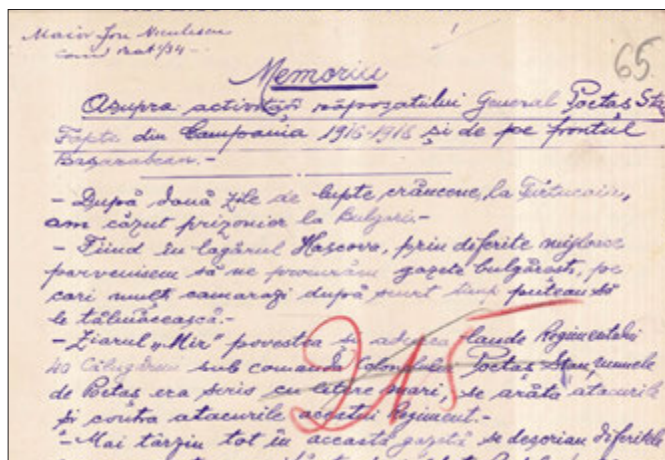 Maior Ion Niculescu
Com Bat 1/34 -
65
Memoriu
Asupra activităței răposatului General Poetaș Stan
Fapte din Campania 1916-1918 și de pe frontul
Basarabean.-
- După două zile de lupte crâncene, la Turtucaia,
am căzut prizonier la Bulgari.-
- Fiind în lagărul Hascovo, prin diferite mijloace
parvenisem să ne procurăm gazete bulgărești, pe
cari mulți camarazi după scurt timp puteau să
le tălmăcească.-
- Ziarul "Mir" povestea și aducea laude Regimentului
40 Călugăreni sub comanda Colonelului Poetaș Stan, numele
de Poetaș era scris cu litere mari, se arăta atacurile
și contra atacurile acestui Regiment.-
- Mai târziu tot în această gazetă se descriau diferitele